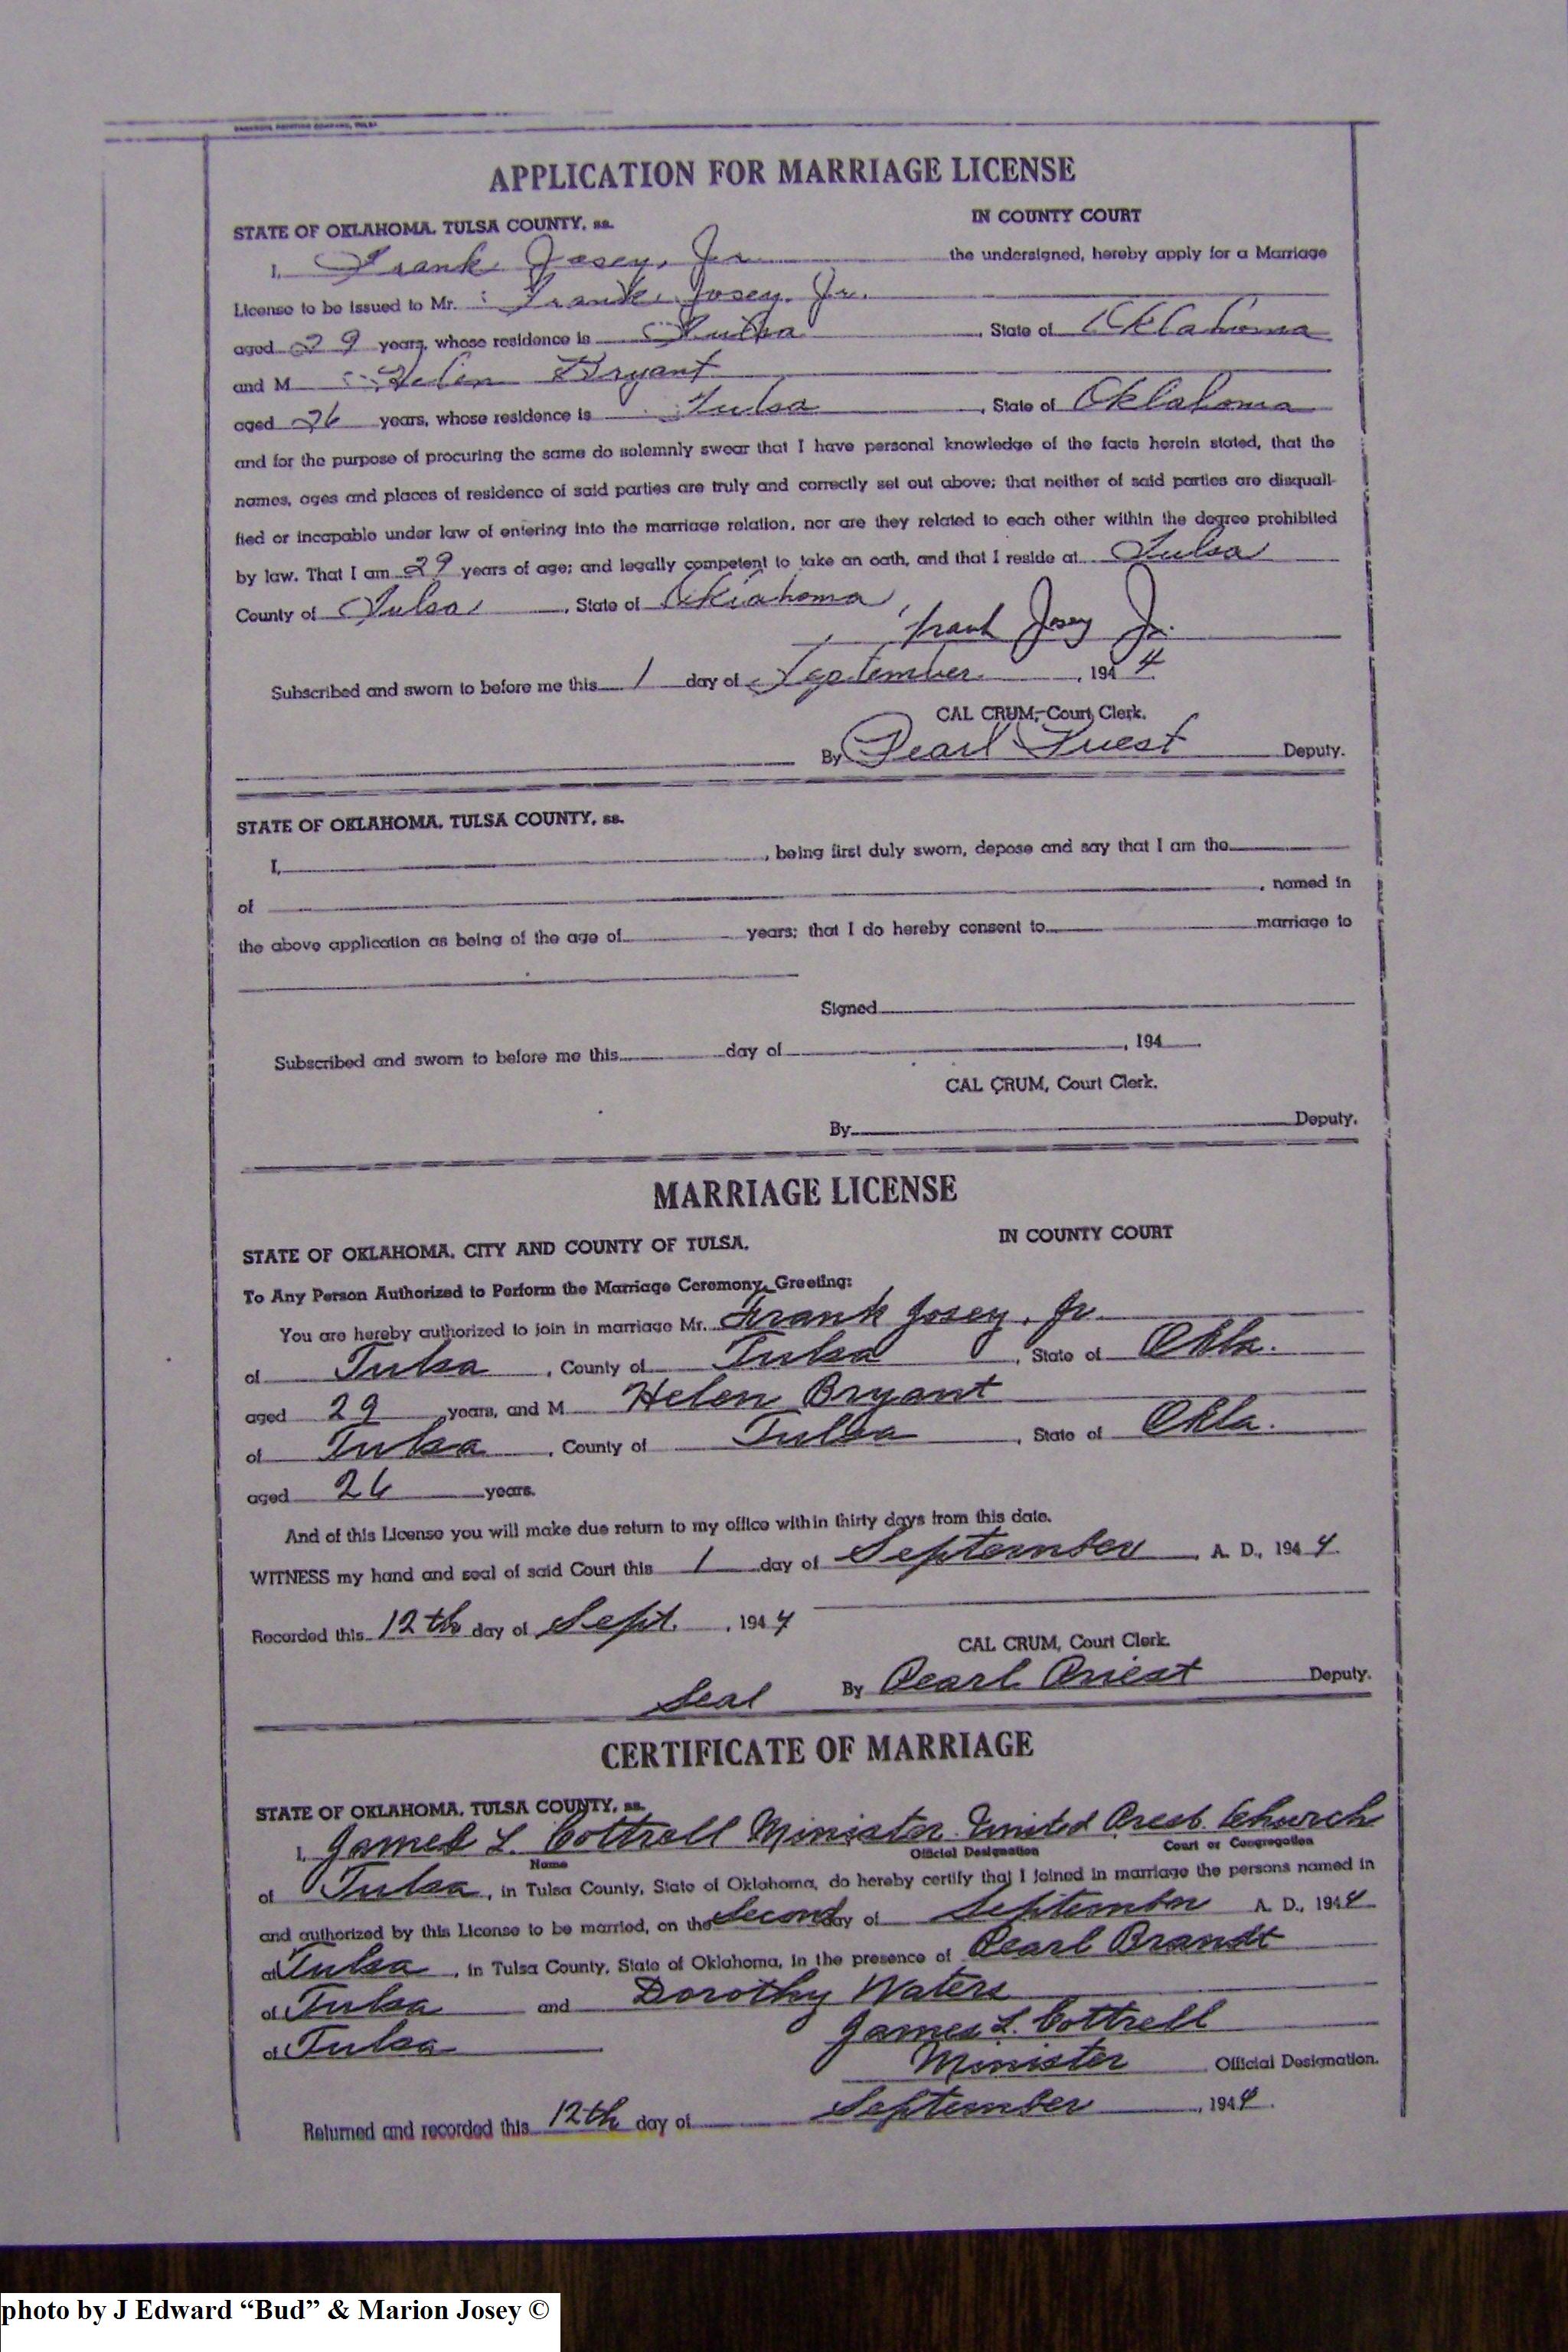 APPLICATION FOR MARRIAGE LICENSE
STATE OF OKLAHOMA, TULSA COUNTY, ss. IN COUNTY COURT
I, Frank Josey, Jr. the undersigned, hereby apply for a Marriage
License to be issued to Mr. Frank Josey, Jr.
aged 29 years, whose residence is Tulsa, State of Oklahoma
and M Helen Bryant
aged 26 years, whose residence is Tulsa, State of Oklahoma
and for the purpose of procuring the same do solemnly swear that I have personal knowledge of the facts herein stated, that the
names, ages and places of residence of said parties are truly and correctly set out above; that neither of said parties are disquali-
fied or incapable under law of entering into the marriage relation, nor are they related to each other within the degree prohibited
by law. That I am 29 years of age; and legally competent to take an oath, and that I reside at Tulsa
County of Tulsa, State of Oklahoma,
Frank Josey Jr.
Subscribed and sworn to before me this 1 day of September, 1944
CAL CRUM, Court Clerk.
By Pearl Priest Deputy.
STATE OF OKLAHOMA, TULSA COUNTY, ss.
I, , being first duly sworn, depose and say that I am the
of , named in
the above application as being of the age of years; that I do hereby consent to marriage to
Signed
Subscribed and sworn to before me this day of , 194
CAL CRUM, Court Clerk.
By Deputy.
MARRIAGE LICENSE
STATE OF OKLAHOMA, CITY AND COUNTY OF TULSA, IN COUNTY COURT
To Any Person Authorized to Perform the Marriage Ceremony, Greeting:
You are hereby authorized to join in marriage Mr. Frank Josey, Jr.
of Tulsa, County of Tulsa, State of Okla.
aged 29 years, and M Helen Bryant
of Tulsa, County of Tulsa, State of Okla.
aged 26 years.
And of this License you will make due return to my office within thirty days from this date.
WITNESS my hand and seal of said Court this 1 day of September A. D., 1944.
Recorded this 12th day of Sept., 1944
CAL CRUM, Court Clerk.
Seal By Pearl Priest Deputy.
CERTIFICATE OF MARRIAGE
STATE OF OKLAHOMA, TULSA COUNTY, ss.
I, James L. Cottrell Minister United Presb. Church
Name Official Designation Court or Congregation
of Tulsa, in Tulsa County, State of Oklahoma, do hereby certify that I joined in marriage the persons named in
and authorized by this License to be married, on the Second day of September A. D., 1944
at Tulsa, in Tulsa County, State of Oklahoma, in the presence of Pearl Brandt
of Tulsa and Dorothy Waters
of Tulsa James L. Cottrell
Minister Official Designation.
Returned and recorded this 12th day of September, 1944.
photo by J Edward “Bud” & Marion Josey ©